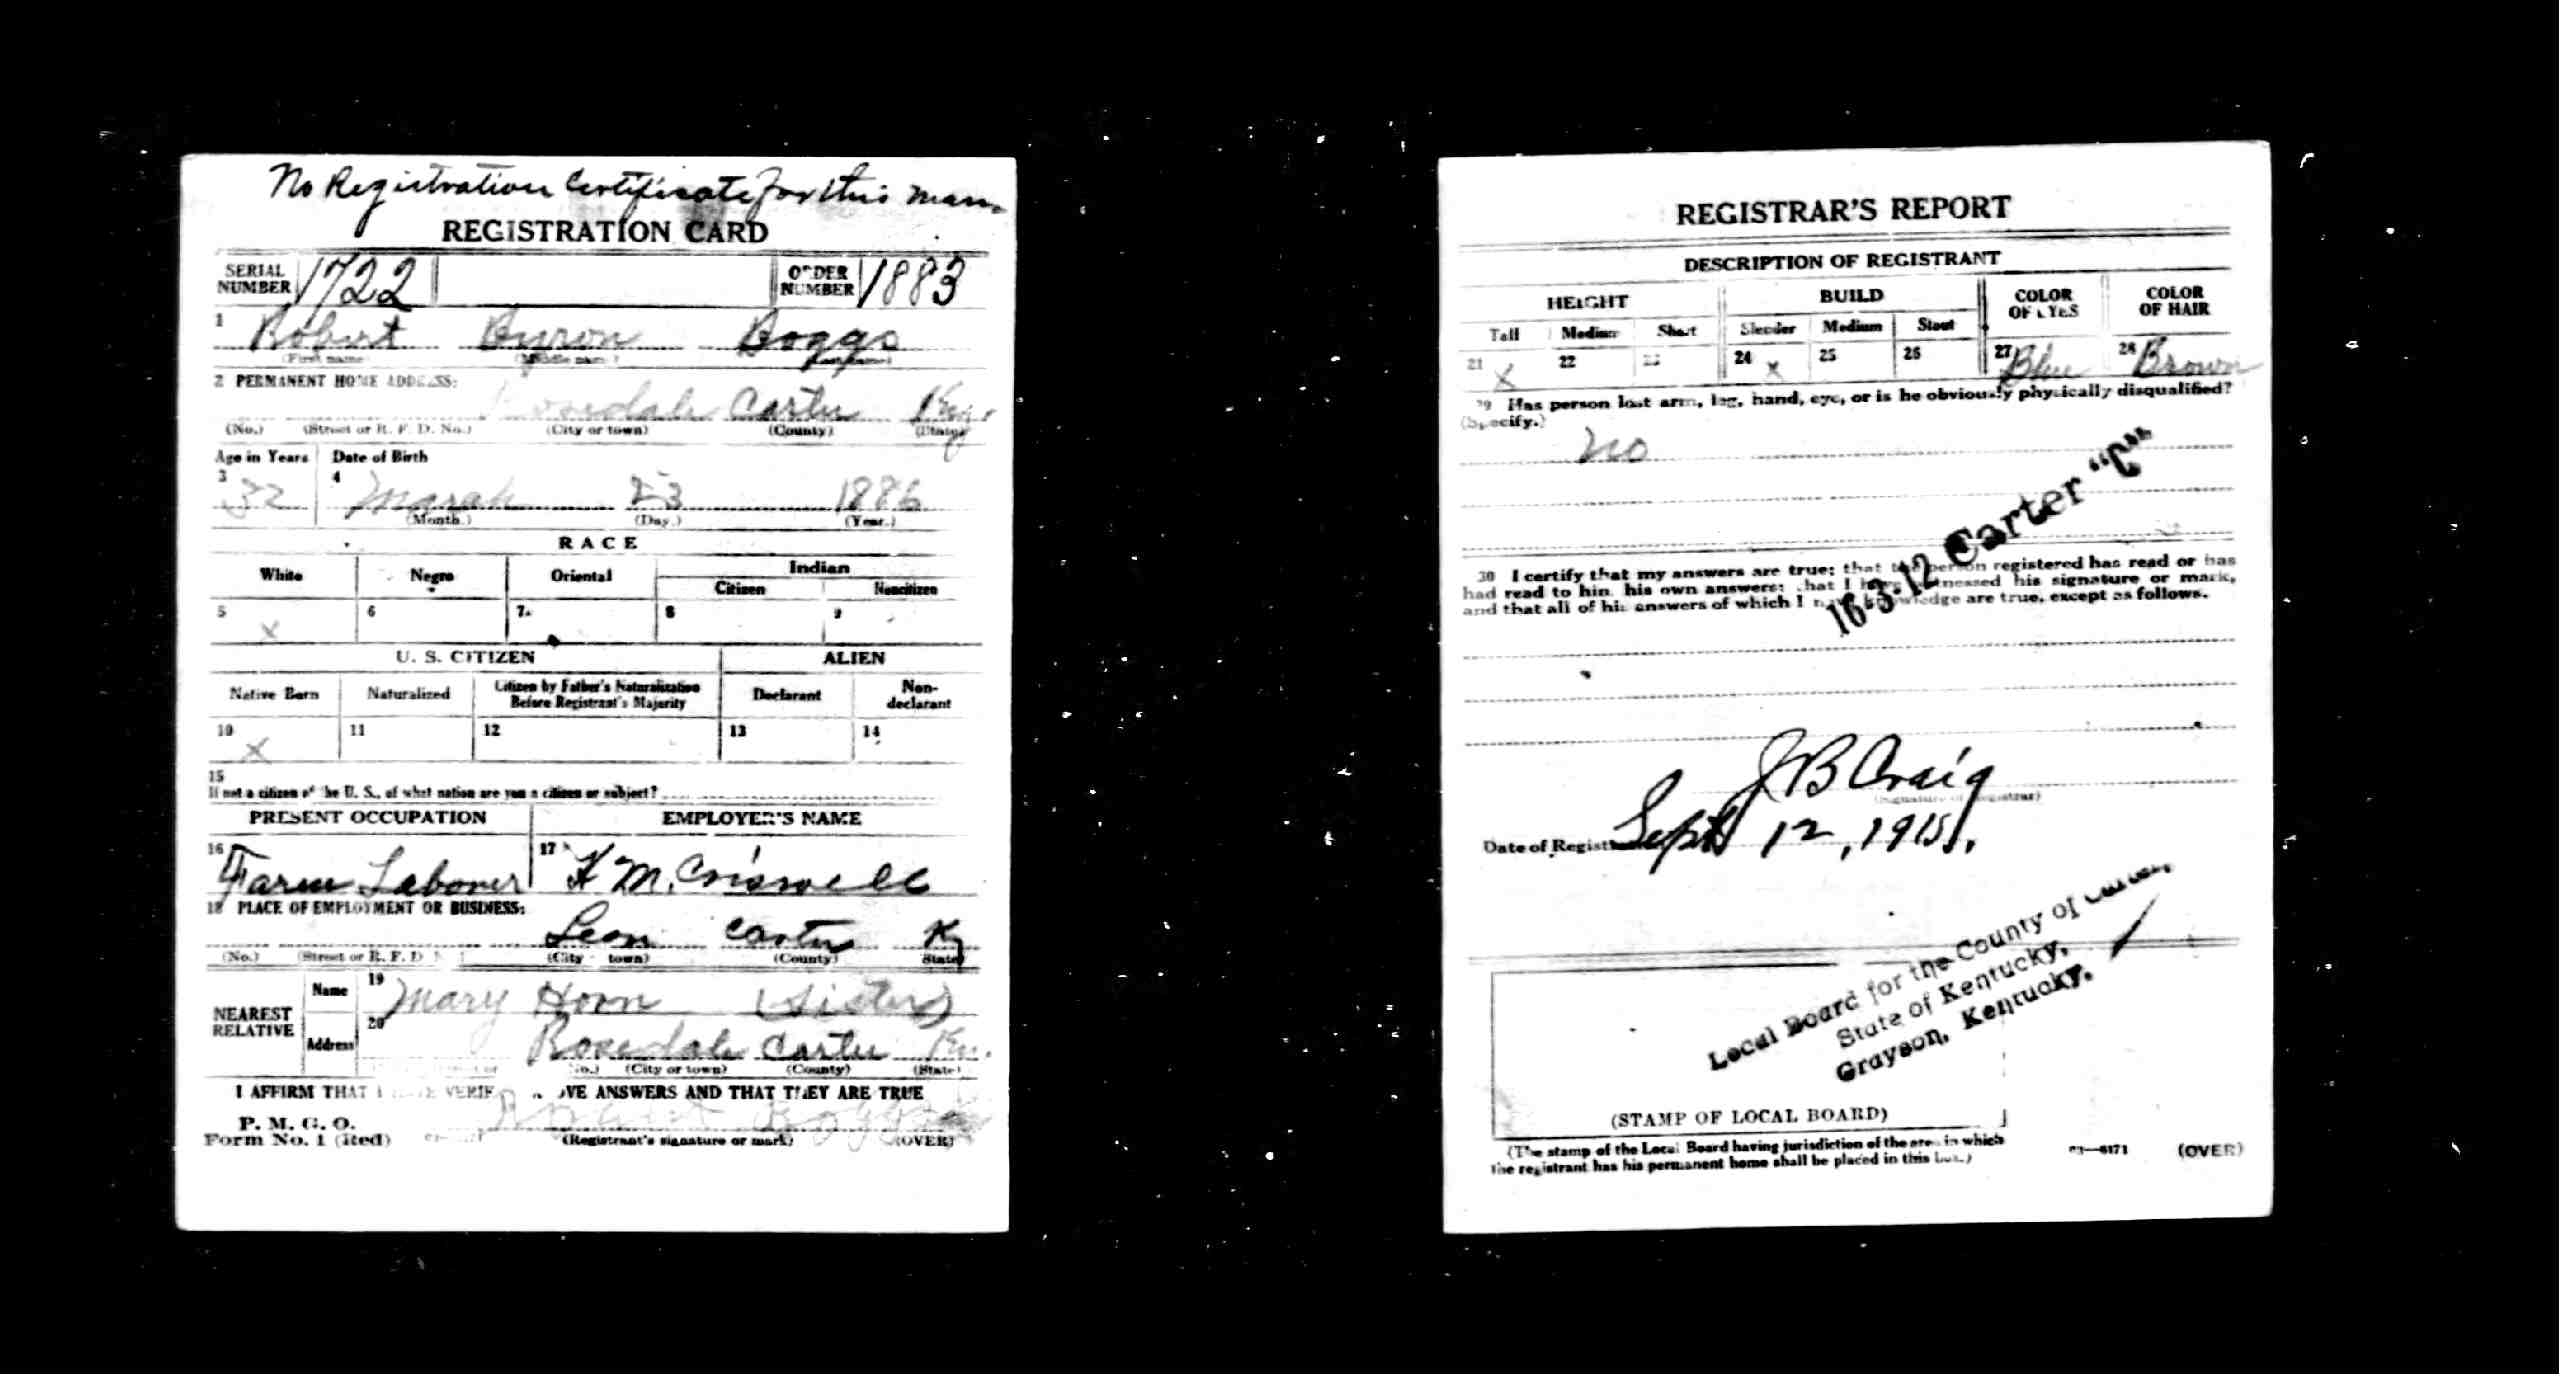 No Registration Certificate for this man.
REGISTRATION CARD
SERIAL NUMBER 1722 ORDER NUMBER 1883
1 Robert Byron Boggs
(First name) (Middle name) (Last name)
2 PERMANENT HOME ADDRESS:
Rosedale Carter Ky.
(No.) (Street or R. F. D. No.) (City or town) (County) (State)
Age in Years Date of Birth
3 32 4 March 23 1886
(Month.) (Day.) (Year.)
RACE
White Negro Oriental Indian
Citizen Noncitizen
5 X 6 7 8 9
U. S. CITIZEN ALIEN
Native Born Naturalized Citizen by Father's Naturalization Before Registrant's Majority Declarant Non-declarant
10 X 11 12 13 14
15
If not a citizen of the U. S., of what nation are you a citizen or subject?
PRESENT OCCUPATION EMPLOYER'S NAME
16 Farm Laborer 17 K M. Criswell
18 PLACE OF EMPLOYMENT OR BUSINESS:
Leon Carter Ky
(No.) (Street or R. F. D. (City town) (County) State)
NEAREST RELATIVE Name 19 Mary Horn (Sister)
Address 20 Rosedale Carter Ky.
No.) (City or town) (County) (State)
I AFFIRM THAT I VERIF OVE ANSWERS AND THAT THEY ARE TRUE
P. M. G. O.
Form No. 1 (Red) Robert Boggs
(Registrant's signature or mark) (OVER)
REGISTRAR'S REPORT
DESCRIPTION OF REGISTRANT
HEIGHT BUILD COLOR OF EYES COLOR OF HAIR
Tall Medium Short Slender Medium Stout
21 X 22 23 24 X 25 26 27 Blue 28 Brown
29 Has person lost arm, leg, hand, eye, or is he obviously physically disqualified?
(Specify.)
No
16-3-12 Carter "C"
30 I certify that my answers are true; that the person registered has read or has
had read to him his own answers; that I have witnessed his signature or mark,
and that all of his answers of which I have knowledge are true, except as follows.
J B Craig
(Signature of Registrar)
Date of Regist Sept 12, 1918.
Local Board for the County of Carter,
State of Kentucky,
Grayson, Kentucky.
(STAMP OF LOCAL BOARD)
(The stamp of the Local Board having jurisdiction of the area in which
the registrant has his permanent home shall be placed in this box.)
03—6171 (OVER)